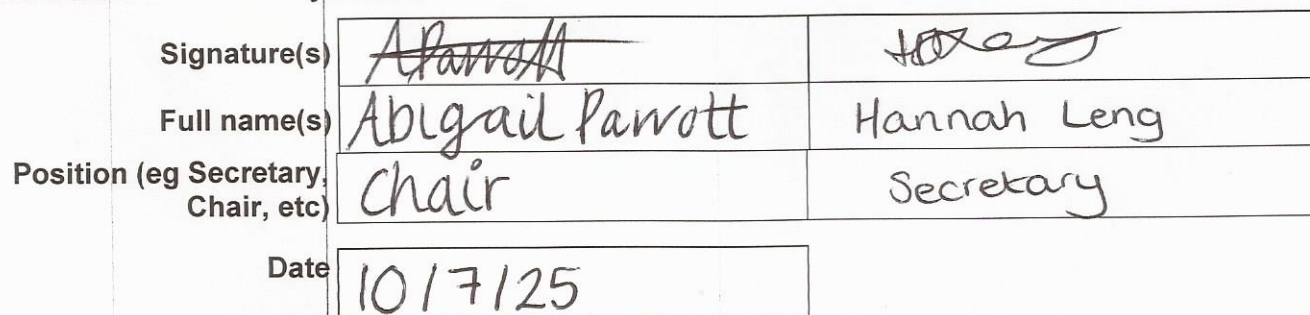 Signature(s) AParrott
Full name(s) Abigail Parrott Hannah Leng
Position (eg Secretary, Chair Secretary
Chair, etc)
Date 10/7/25